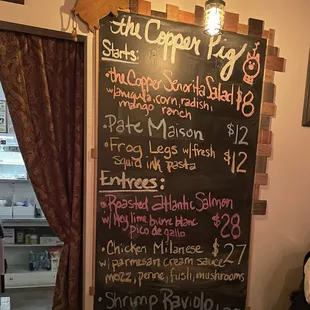 the Copper Pig
Starts:
• the Copper Senorita Salad
w/ arugula, corn, radish, $8
mango ranch
• Pate Maison $12
• Frog Legs w/ fresh $12
squid ink pasta
Entrees:
• Roasted atlantic Salmon
w/ Key lime burre blanc $28
pico de gallo
• Chicken Milanese $27
w/ parmesan cream sauce
mozz, penne, fusli, mushrooms
• Shrimp Raviolo